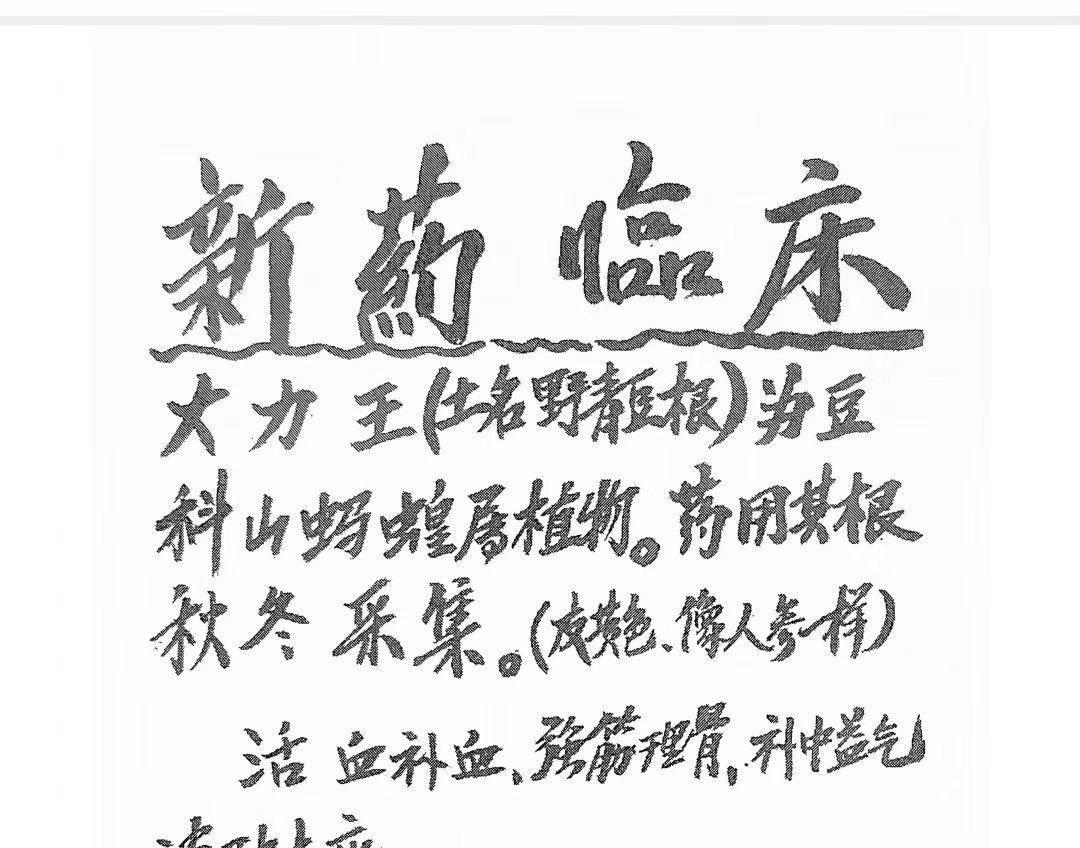 新药 临床
大力王(土名野青豆根)为豆
科山蚂蝗属植物。药用其根
秋冬采集。(皮黄色、像人参一样)
活血补血、强筋理骨,补中益气